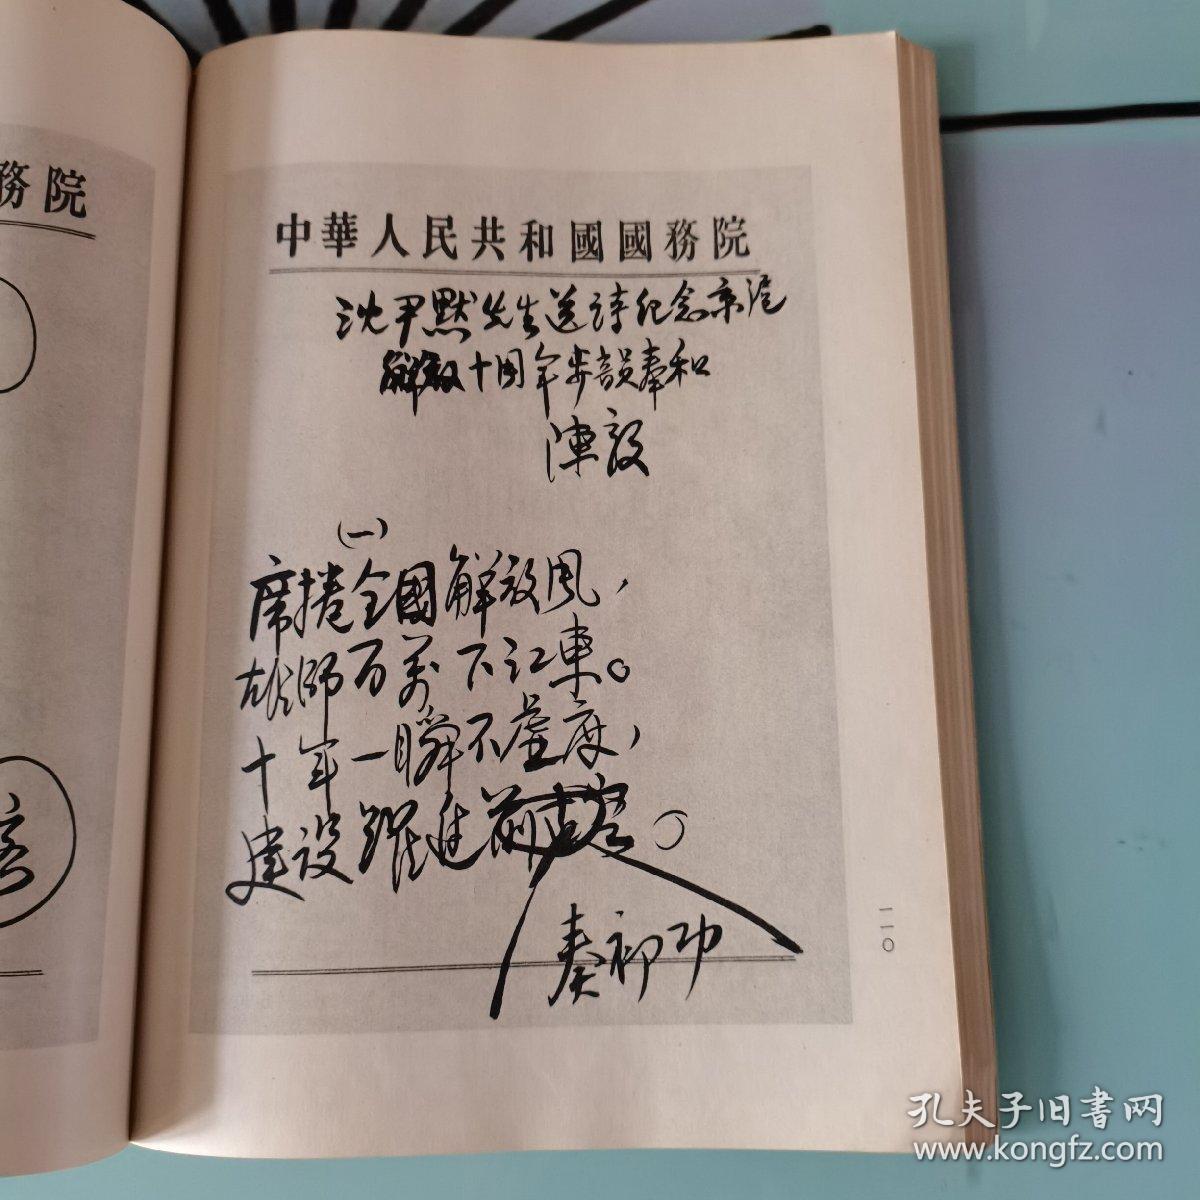 務院
中華人民共和國國務院
沈尹默先生送诗纪念京沪
解放十周年步韻奉和
陳毅
(一)
席捲全國解放風，
雄師百萬下江東。
十年一瞬不虛度，
建設躍進前古
奏初功
一一〇
孔夫子旧书网
www.kongfz.com